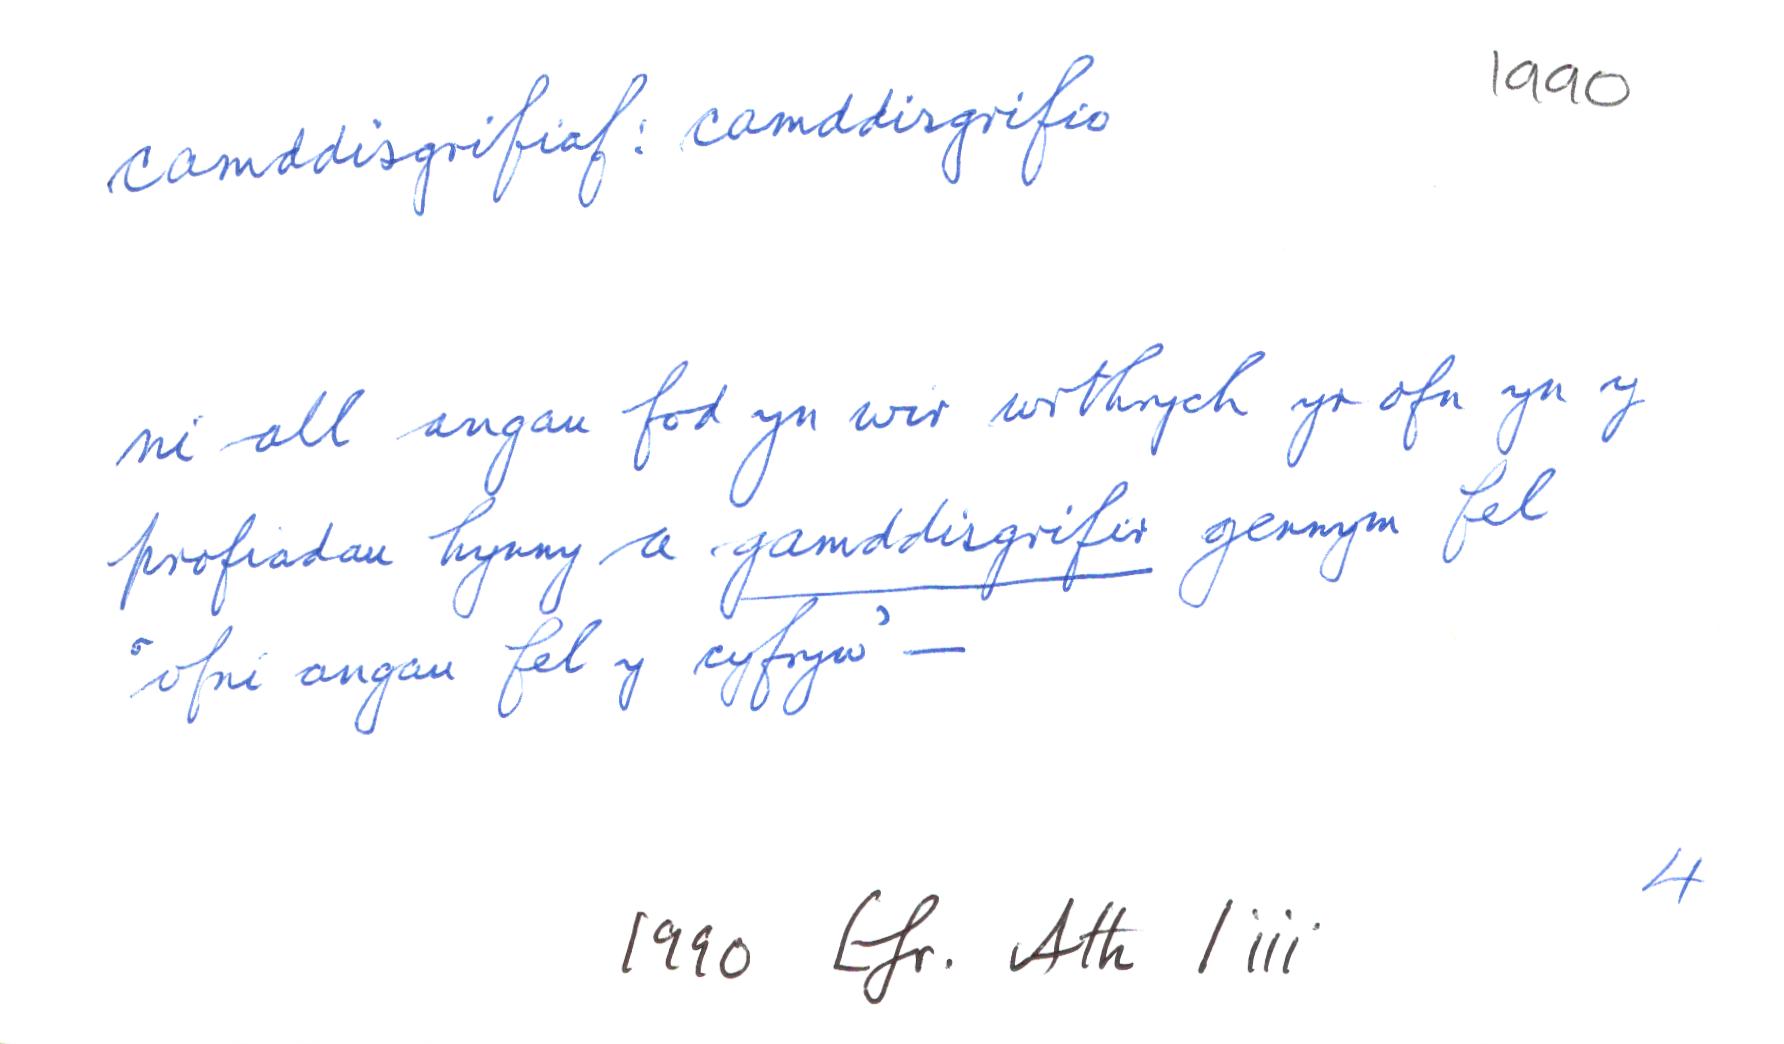 camddisgrifiaf: camddisgrifio 1990
ni all angau fod yn wir wrthrych yr ofn yn y
profiadau hynny a gamddisgrifir gennym fel
“ofni angau fel y cyfryw’ —
4
1990 Efr. Ath liii